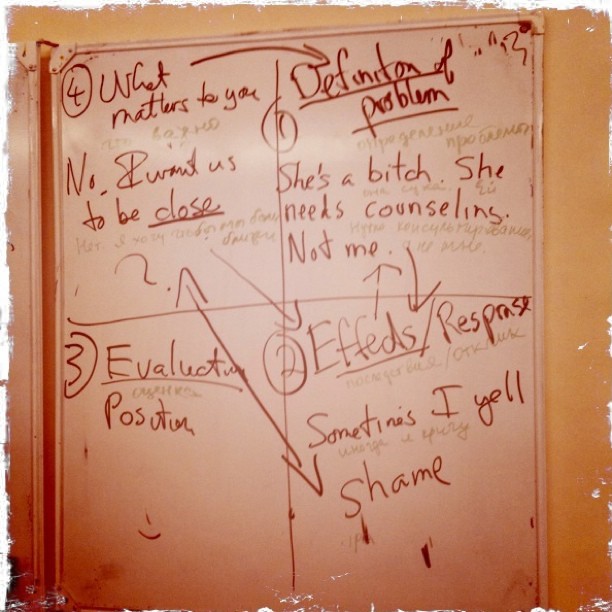 ④ What
matters to you
что важно
No. I want us
to be close.
Нет. я хочу чтобы мы были
близки
?
Definiton of
problem
①
определение
проблемы
She's a bitch. She
она сука. Ей
needs counseling.
нужно консультирование,
Not me.
а не мне.
③ Evaluation
оценка
Position
② Effects/Response
последствия/отклик
Sometimes I yell
иногда я кричу
Shame